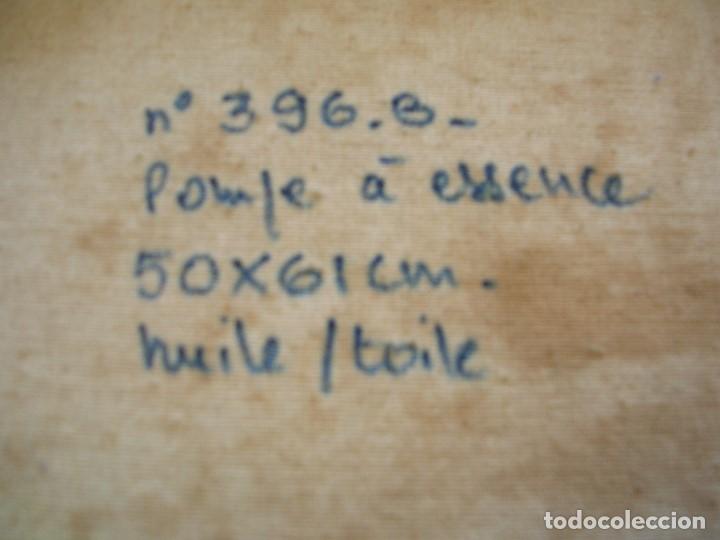 n° 396.B-
Pompe à essence
50X61cm.
huile/toile
todocoleccion